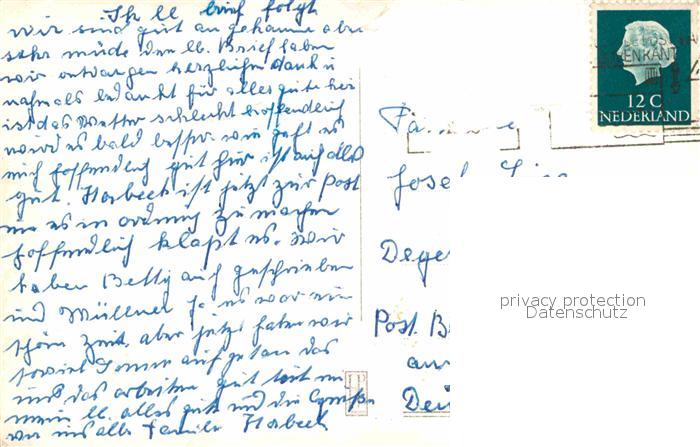 Ihr ll brief folgt
Wir sind gut angekommen aber
sehr müde den lb. Brief haben
wir entvangen herzlichen dank u
nahmals bedankt für alles gute hir
ist das Wetter schlecht hoffendlich
wird es bald besser wie geht es
mich hoffendlich gut hir ist auch alles
gut. Horbeck ist jetzt zur Post
um es in ordnung zu machen
hoffendlich klapt es. Wir
haben Betty auch geschrieben
und Müllner ja es war ein
schöne Zeit, aber jetzt haben wir
soviel Sonne auf getan das
uns das arbeiten gut
alles gute und die Grüße
von uns alle Familie Horbeck
12 C
NEDERLAND
Josef
Dege
Post. B
an
Deu
privacy protection
Datenschutz